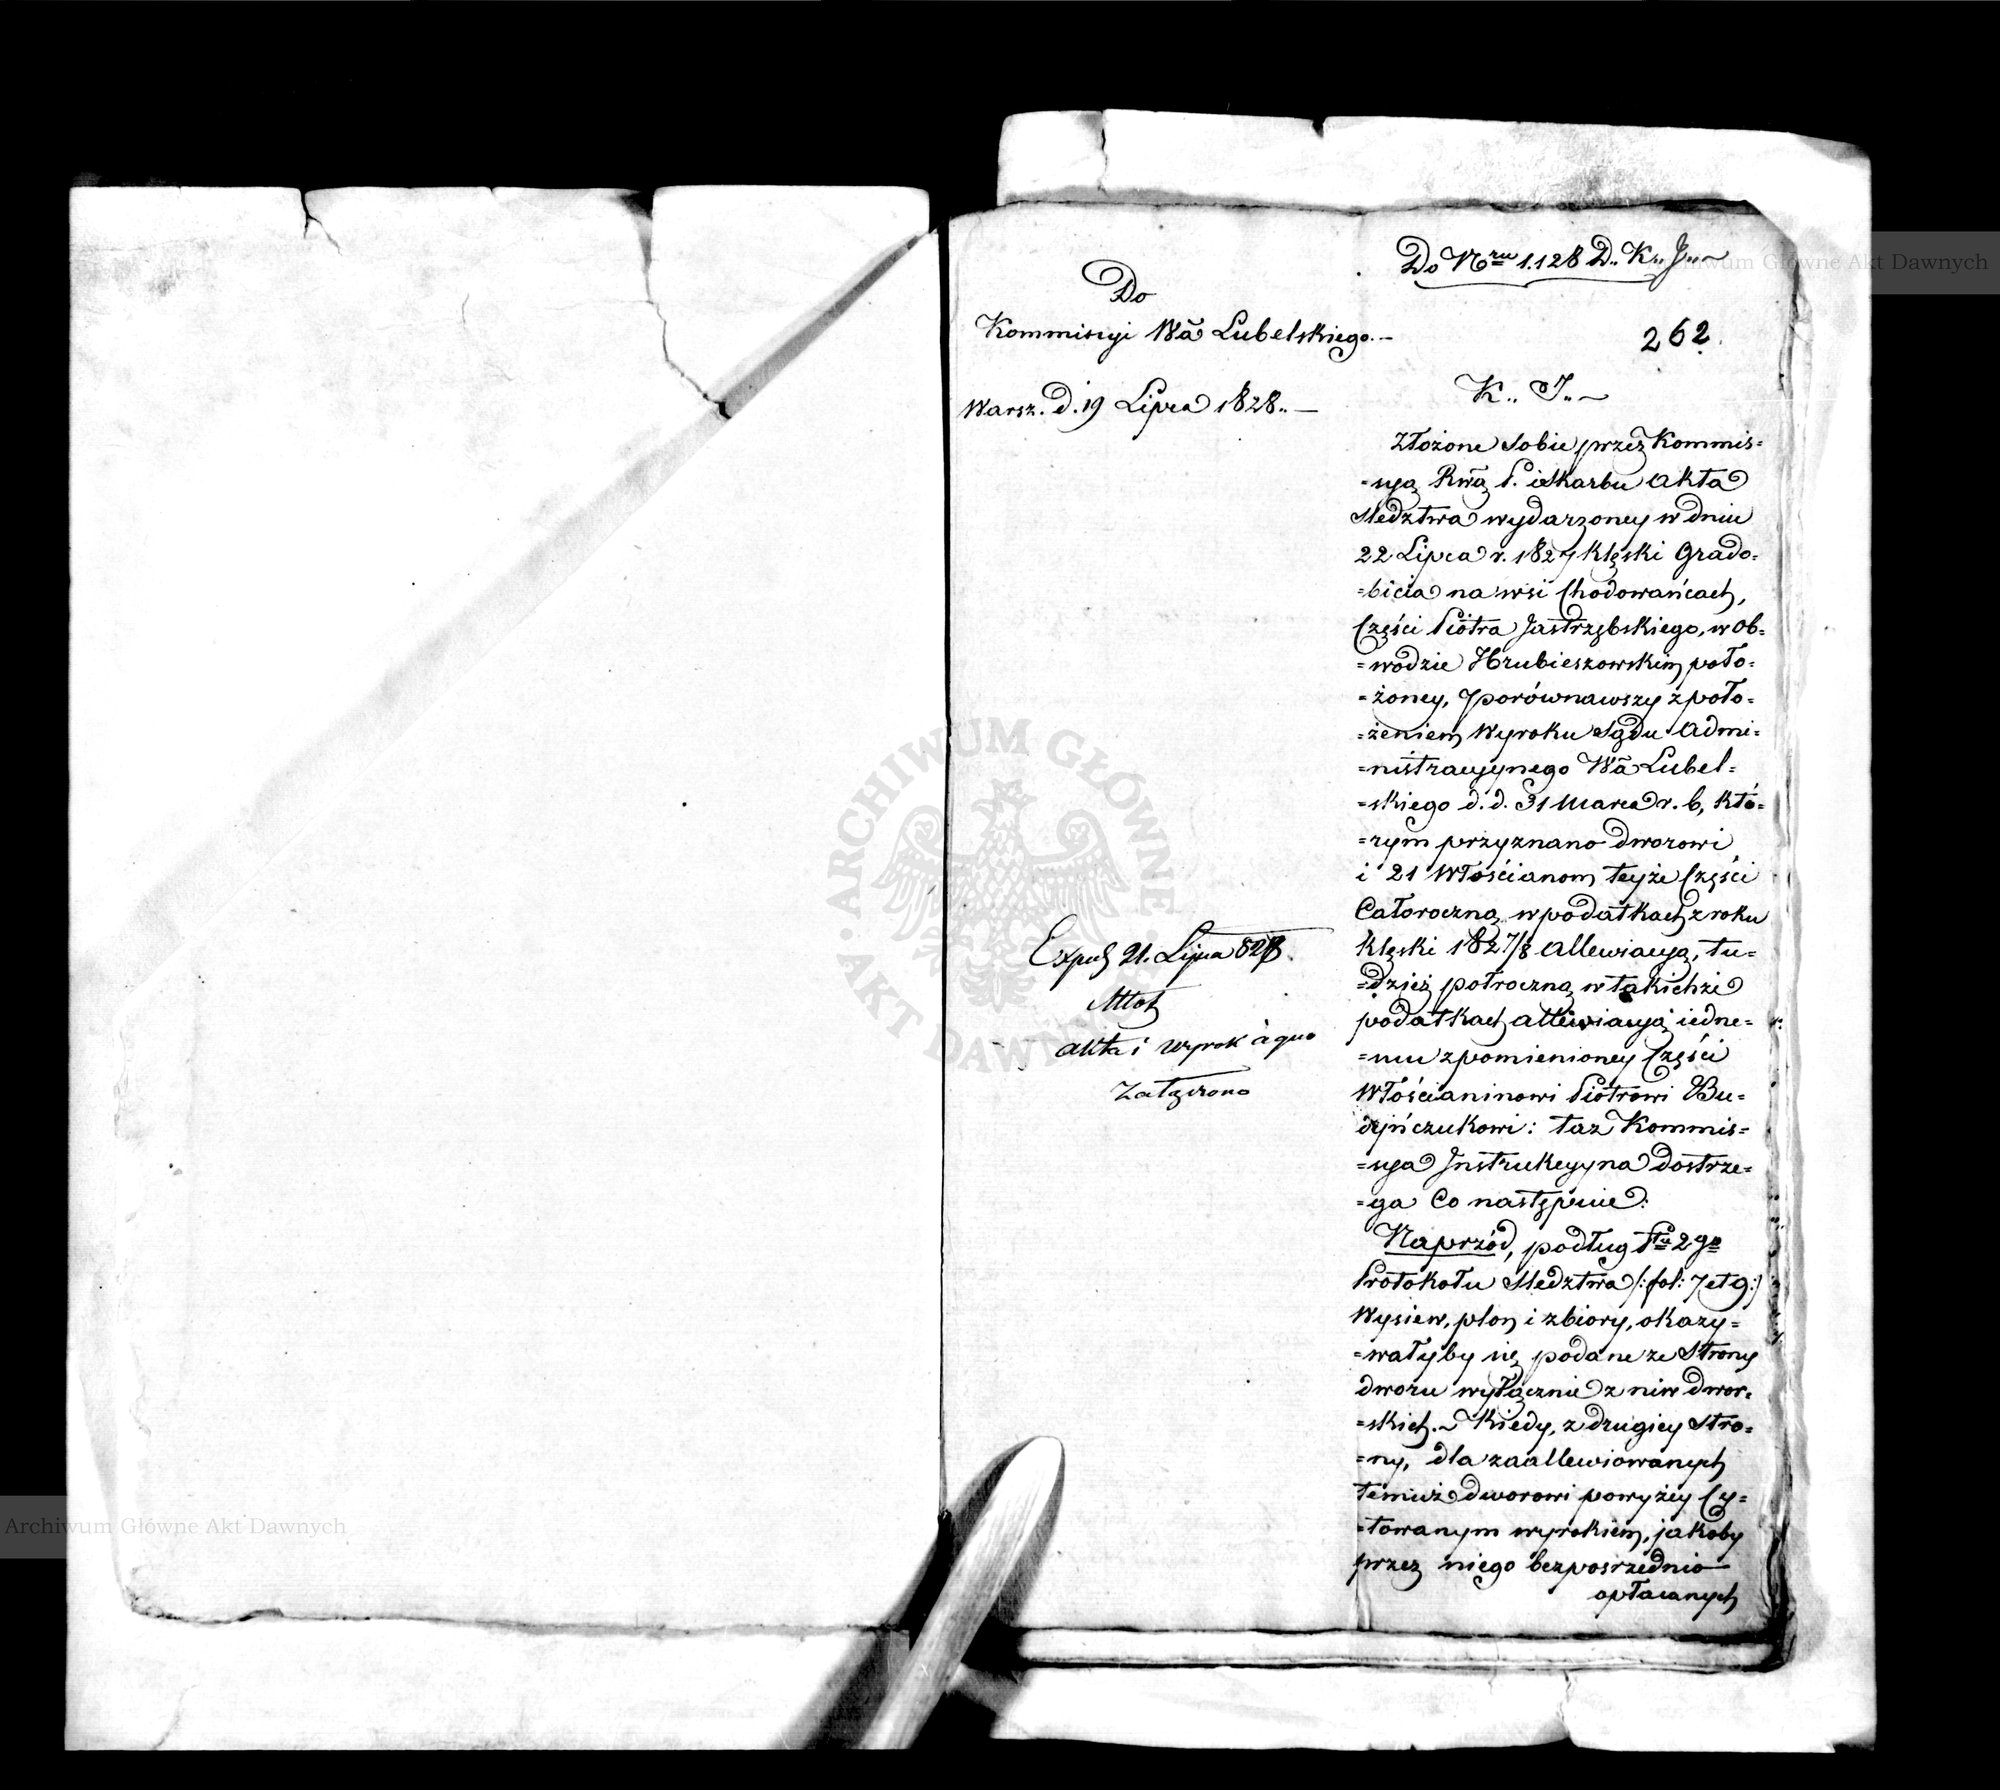 Do Nru 1.128 D.. K.. J..
262.
Do
Kommissyi Wa Lubelskiego.
Warsz. d. 19 Lipca 1828..
K.. J..
Złożone sobie przez Kommis=
=syą Rwą P. i Skarbu akta
sledztwa wydarzoney w dniu
22 Lipca r. 1827 klęski Grado=
=bicia na wsi Chodowańcach,
Części Piotra Jastrzębskiego, w Ob=
=wodzie Hrubieszowskim poło=
=żoney, porównawszy z poło=
=żeniem Wyroku Sądu Admi=
=nistracyynego Wa Lubel=
=skiego d. d. 31 Marca r. b, któ=
=rym przyznano dworowi
i 21 Włościanom teyże Części
Całoroczną w podatkach z roku
klęski 1827/8 allewiacyą, tu=
=dzież półroczną w takichże
podatkach allewiacyą iedne=
=mu z pomienioney Części
Włościaninowi Piotrowi Bu=
dyńczukowi: taz Kommis=
=sya Instrukcyyna dostrze=
=ga co następuie:
Naprzód, podług Ptu 2go
Protokołu Sledztwa /: fol: 7 et 9:/
Wysiew, plon i zbiory, okazy=
=wałyby się podane ze Strony
dworu wyłącznie z niw dwor=
=skich. Kiedy, z drugiey Stro=
=ny, dla zaallewiowanych
temuż dworowi powyżey Cy=
=towanym wyrokiem, jakoby
przez niego bezposrzednio
opłacanych
Exped 21. Lipca 828.
akta i wyrok à quo
załączono
ARCHIWUM GŁÓWNE
AKT DAWNYCH
Archiwum Główne Akt Dawnych
Archiwum Główne Akt Dawnych